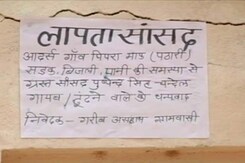 लापता सांसद
आदर्श गाँव पिपरा माफ (पठारी)
सड़क, बिजली, पानी की समस्या से
ग्रस्त सांसद पुष्पेन्द्र सिंह चन्देल
गायब / ढूंढने वाले को धन्यवाद
निवेदक - गरीब ग्रामवासी